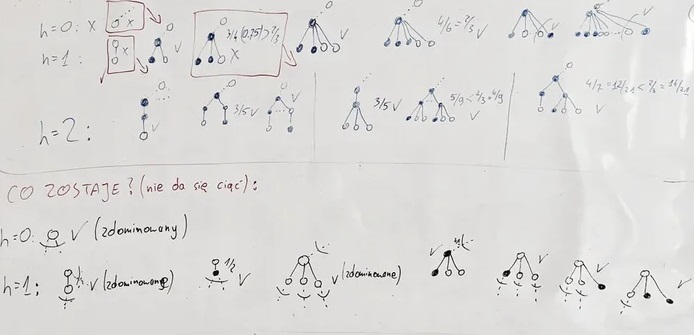 h=0: X X V
h=1: X V 3/4 (0,75) > 2/3 X V 4/6 = 2/3 V V V
h=2: V 3/5 V V 3/5 V 5/9 < 2/3 = 6/9 4/7 = 12/21 < 2/3 = 14/21
CO ZOSTAJE? (nie da się ciąć):
h=0: V (zdominowany)
h=1: V (zdominowane) 1/2 V V (zdominowane) V V V V